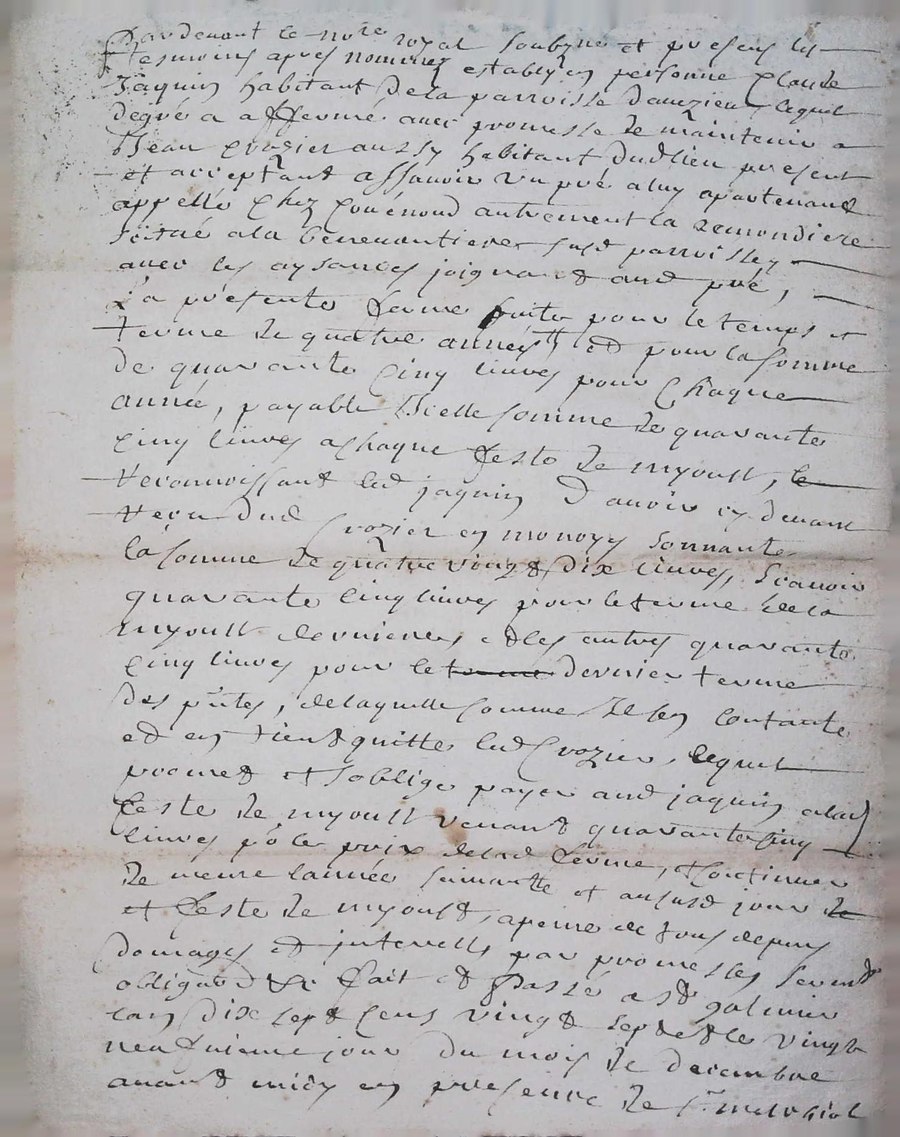 Pardevant le no.re royal soubzne et presens les
tesmoins apres nommez estably en personne Claude
Jaquin habitant de la parroisse davezieu lequel
de gré a affermé avec promesse de maintenir a
Jean Crozier aussy habitant dud lieu present
et acceptant assavoir un pré a luy apartenant
appellé Chez autrement la Remondiere
scitué a la susd parroisse
avec les aysances joignant aud pré,
La presente ferme faite pour le temps et
terme de quatre années, et pour la somme
de quarante cinq livres pour chaque
année, payable Icelle somme de quarante
cinq livres a chaque feste de myoust, le
reconnoissant led jaquin d'avoir cy devant
receu dud Crozier en monoye sonnante
la somme de quatre vingt dix livres, scavoir
quarante cinq livres pour le terme de la
myoust derniere, et les autres quarante
cinq livres pour le terme dernier terme
des pntes, de laquelle somme Il sen contante
et en tient quitte led Crozier, lequel
promet et soblige payer aud jaquin a lad
feste de myoust venant quarante cinq
livres p.r le prix de lad ferme, et continuer
de meme lannée suivante et aususd jour de
et feste de myoust, a peine de tous depens
domages et interests par promesses serent
obligaon &c fait et passé a St galmier
lan dix sept cens vingt sept et le vingt
neufvieme jour du mois de decembre
avant midy en presence de Sr